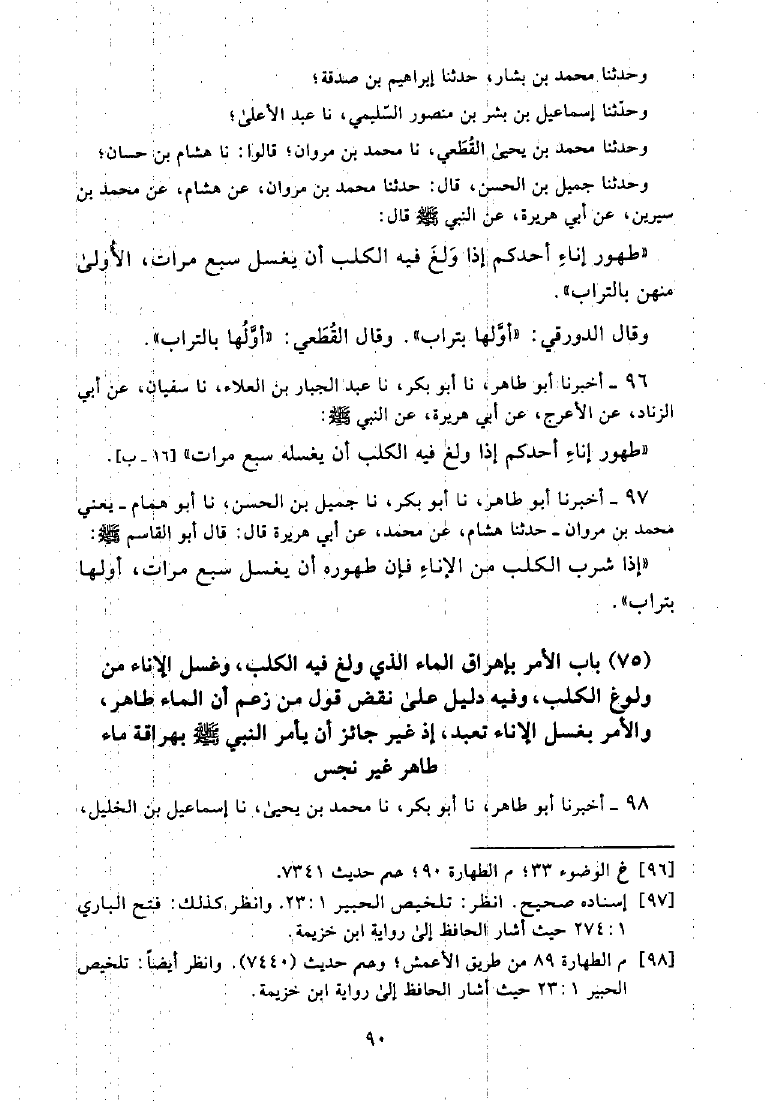 وحدثنا محمد بن بشار، حدثنا إبراهيم بن صدقة؛
وحدّثنا إسماعيل بن بشر بن منصور السّليمي، نا عبد الأعلىٰ؛
وحدثنا محمد بن يحيىٰ القُطَعي، نا محمد بن مروان؛ قالوا: نا هشام بن حسان؛
وحدثنا جميل بن الحسن، قال: حدثنا محمد بن مروان، عن هشام، عن محمد بن
سيرين، عن أبي هريرة، عن النبي ﷺ قال:
«طهور إناءِ أحدكم إذا وَلغَ فيه الكلب أن يغسل سبع مرات، الأُولىٰ
منهن بالتراب».
وقال الدورقي: «أوَّلها بتراب». وقال القُطَعي: «أوَّلُها بالتراب».
٩٦ ـ أخبرنا أبو طاهر، نا أبو بكر، نا عبد الجبار بن العلاء، نا سفيان، عن أبي
الزناد، عن الأعرج، عن أبي هريرة، عن النبي ﷺ:
«طهور إناءِ أحدكم إذا ولغ فيه الكلب أن يغسله سبع مرات» [١٦ ـ ب].
٩٧ ـ أخبرنا أبو طاهر، نا أبو بكر، نا جميل بن الحسن، نا أبو همام ـ يعني
محمد بن مروان ـ حدثنا هشام، عن محمد، عن أبي هريرة قال: قال أبو القاسم ﷺ:
«إذا شرب الكلب من الإناءِ فإن طهوره أن يغسل سبع مرات، أولها
بتراب».
(٧٥) باب الأمر بإهراق الماء الذي ولغ فيه الكلب، وغسل الإناء من
ولوغ الكلب، وفيه دليل علىٰ نقض قول من زعم أن الماء طاهر،
والأمر بغسل الإناء تعبد، إذ غير جائز أن يأمر النبي ﷺ بهراقة ماء
طاهر غير نجس
٩٨ ـ أخبرنا أبو طاهر، نا أبو بكر، نا محمد بن يحيىٰ، نا إسماعيل بن الخليل،
[٩٦] خ الوضوء ٣٣؛ م الطهارة ٩٠؛ حم حديث ٧٣٤١.
[٩٧] إسناده صحيح. انظر: تلخيص الحبير ١: ٢٣. وانظر كذلك: فتح الباري
١: ٢٧٤ حيث أشار الحافظ إلىٰ رواية ابن خزيمة.
[٩٨] م الطهارة ٨٩ من طريق الأعمش؛ وحم حديث (٧٤٤٠). وانظر أيضاً: تلخيص
الحبير ١: ٢٣ حيث أشار الحافظ إلىٰ رواية ابن خزيمة.
٩٠